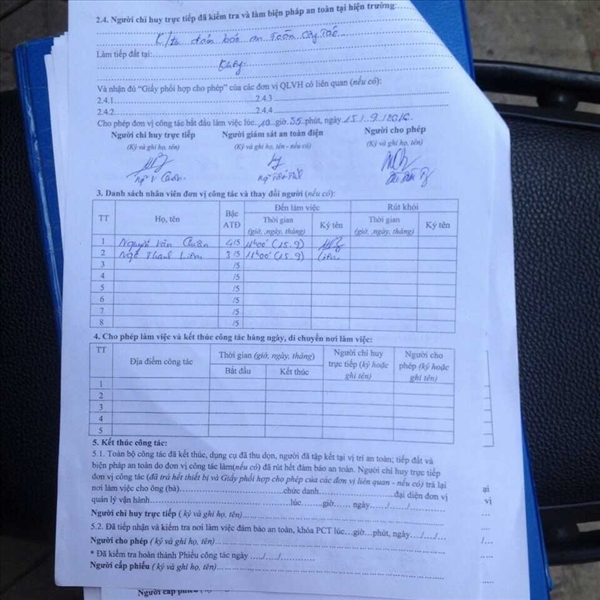 2.4. Người chỉ huy trực tiếp đã kiểm tra và làm biện pháp an toàn tại hiện trường:
đảm bảo an toàn
Làm tiếp đất tại:
Không
Và nhận đủ "Giấy phối hợp cho phép" của các đơn vị QLVH có liên quan (nếu có):
2.4.1 2.4.3
2.4.2 2.4.4
Cho phép đơn vị công tác bắt đầu làm việc lúc 10 giờ 55 phút, ngày 15/9/2016
Người chỉ huy trực tiếp Người giám sát an toàn điện Người cho phép
(Ký và ghi họ, tên) (Ký và ghi họ, tên - nếu có) (Ký và ghi họ, tên)
3. Danh sách nhân viên đơn vị công tác và thay đổi người (nếu có):
TT Họ, tên Bậc ATĐ Đến làm việc Rút khỏi
Thời gian (giờ, ngày, tháng) Ký tên Thời gian (giờ, ngày, tháng) Ký tên
1 Nguyễn Văn 4/5 11h00' (15.9)
2 Ngô Thanh Liêm 3/5 11h00' (15.9)
3 /5
4 /5
5 /5
6 /5
7 /5
8 /5
4. Cho phép làm việc và kết thúc công tác hàng ngày, di chuyển nơi làm việc:
TT Địa điểm công tác Thời gian (giờ, ngày, tháng) Người chỉ huy trực tiếp (ký hoặc ghi tên) Người cho phép (ký hoặc ghi tên)
Bắt đầu Kết thúc
1
2
3
4
5
5. Kết thúc công tác:
5.1. Toàn bộ công tác đã kết thúc, dụng cụ đã thu dọn, người đã tập kết tại vị trí an toàn; tiếp đất và
biện pháp an toàn do đơn vị công tác làm(nếu có) đã rút hết đảm bảo an toàn. Người chỉ huy trực tiếp
đơn vị công tác (đã trả hết thiết bị và Giấy phối hợp cho phép của các đơn vị liên quan - nếu có) trả lại
nơi làm việc cho ông (bà) chức danh đại diện đơn vị
quản lý vận hành lúc giờ ngày / /
Người chỉ huy trực tiếp ( ký và ghi họ, tên)
5.2. Đã tiếp nhận và kiểm tra nơi làm việc đảm bảo an toàn, khóa PCT lúc...giờ...phút, ngày.../.../...
Người cho phép ( ký và ghi họ, tên)
* Đã kiểm tra hoàn thành Phiếu công tác ngày .../.../...
Người cấp phiếu ( ký và ghi họ, tên)
Người cấp phiếu ( ký và ghi họ